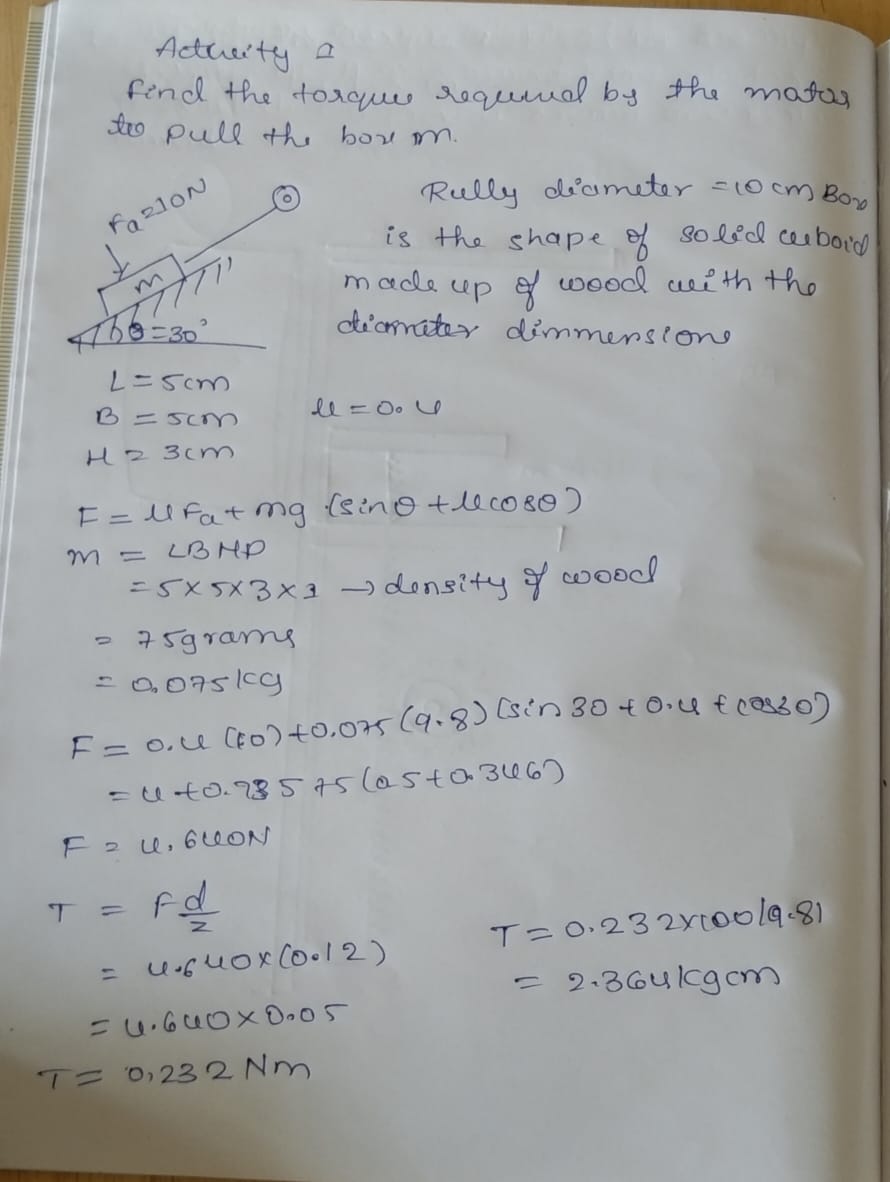 Activity 2
find the torque required by the motor
to pull the box m.
Fa=10N
Pully diameter = 10 cm Box
is the shape of solid cuboid
m
made up of wood with the
θ=30°
diamater dimmensions
L = 5cm
B = 5cm
μ = 0.4
H = 3cm
F = μFa + mg (sinθ + μcosθ)
m = LBHP
= 5×5×3×1 → density of wood
= 75grams
= 0.075kg
F = 0.4 (10) + 0.075 (9.8) (sin 30 + 0.4 + cos30)
= 4 + 0.73575 (0.5 + 0.346)
F = 4.640N
T = F d/2
= 4.640×(0.12)
= 4.640×0.05
T = 0.232 Nm
T = 0.232×100/9.81
= 2.364kgcm